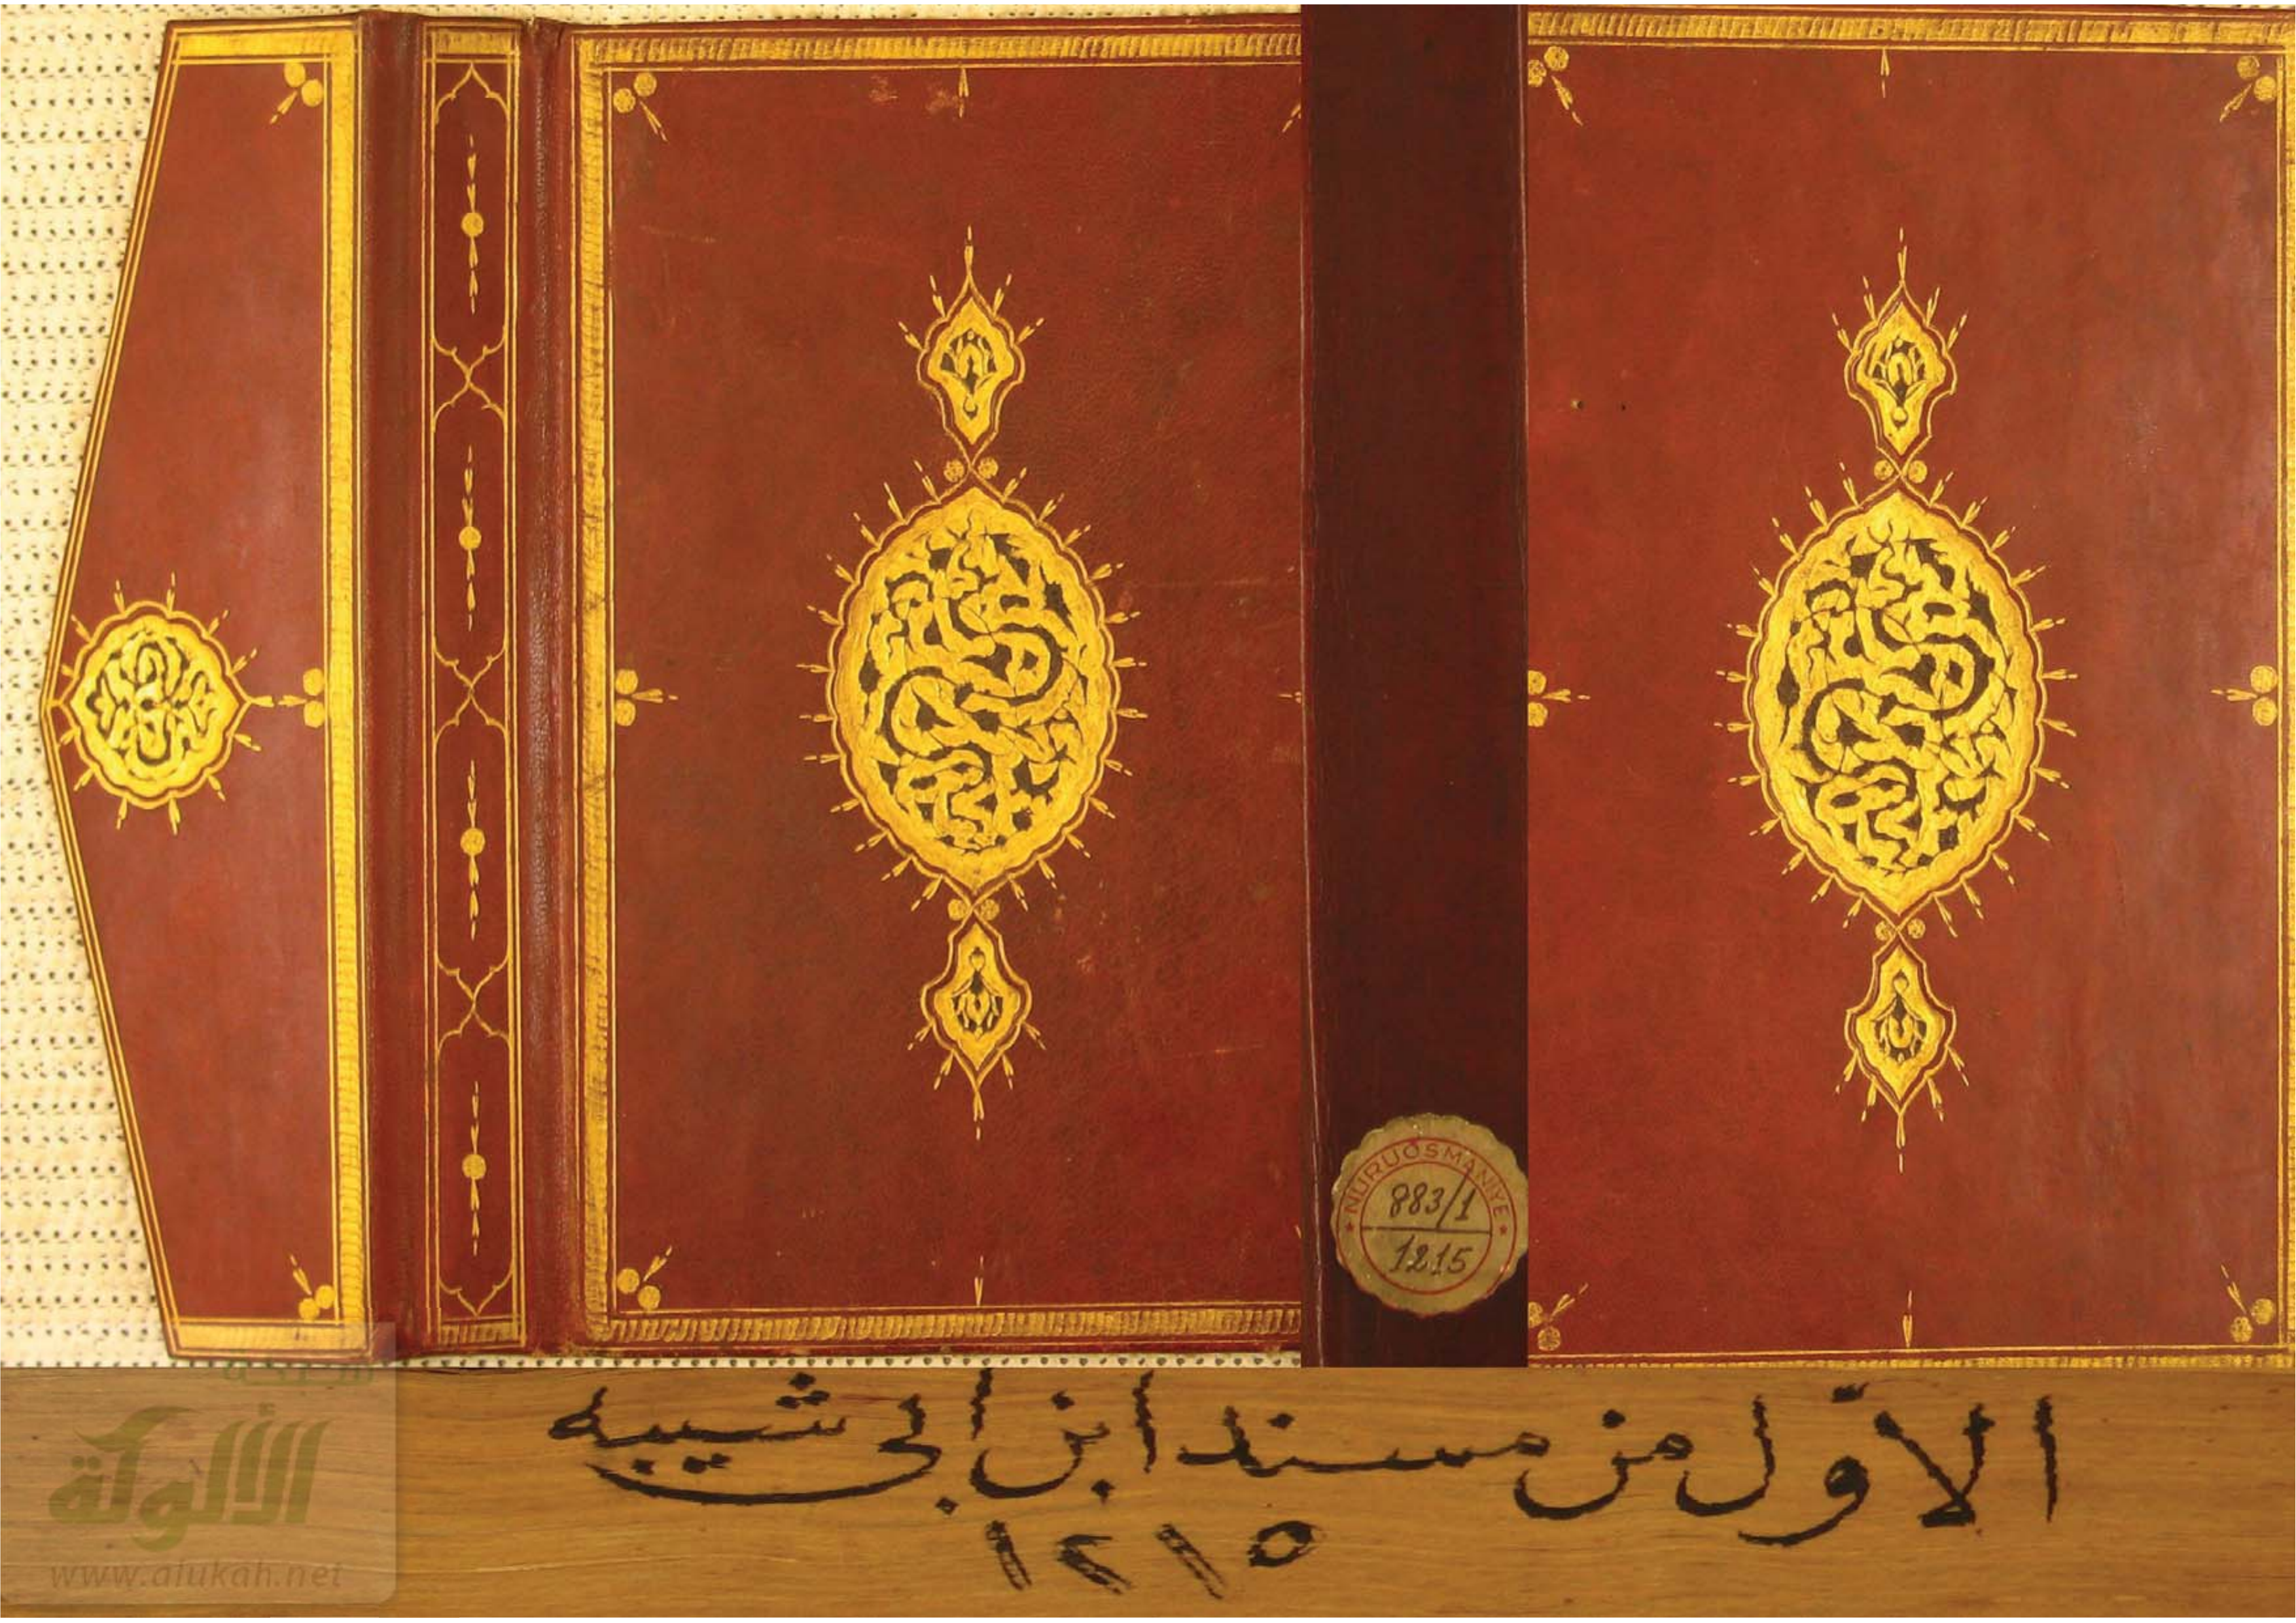 NURUOSMANIYE
883/1
1215
الأوّل من مسند ابن ابى شيبه
١٢١٥
الألوكة
www.alukah.net